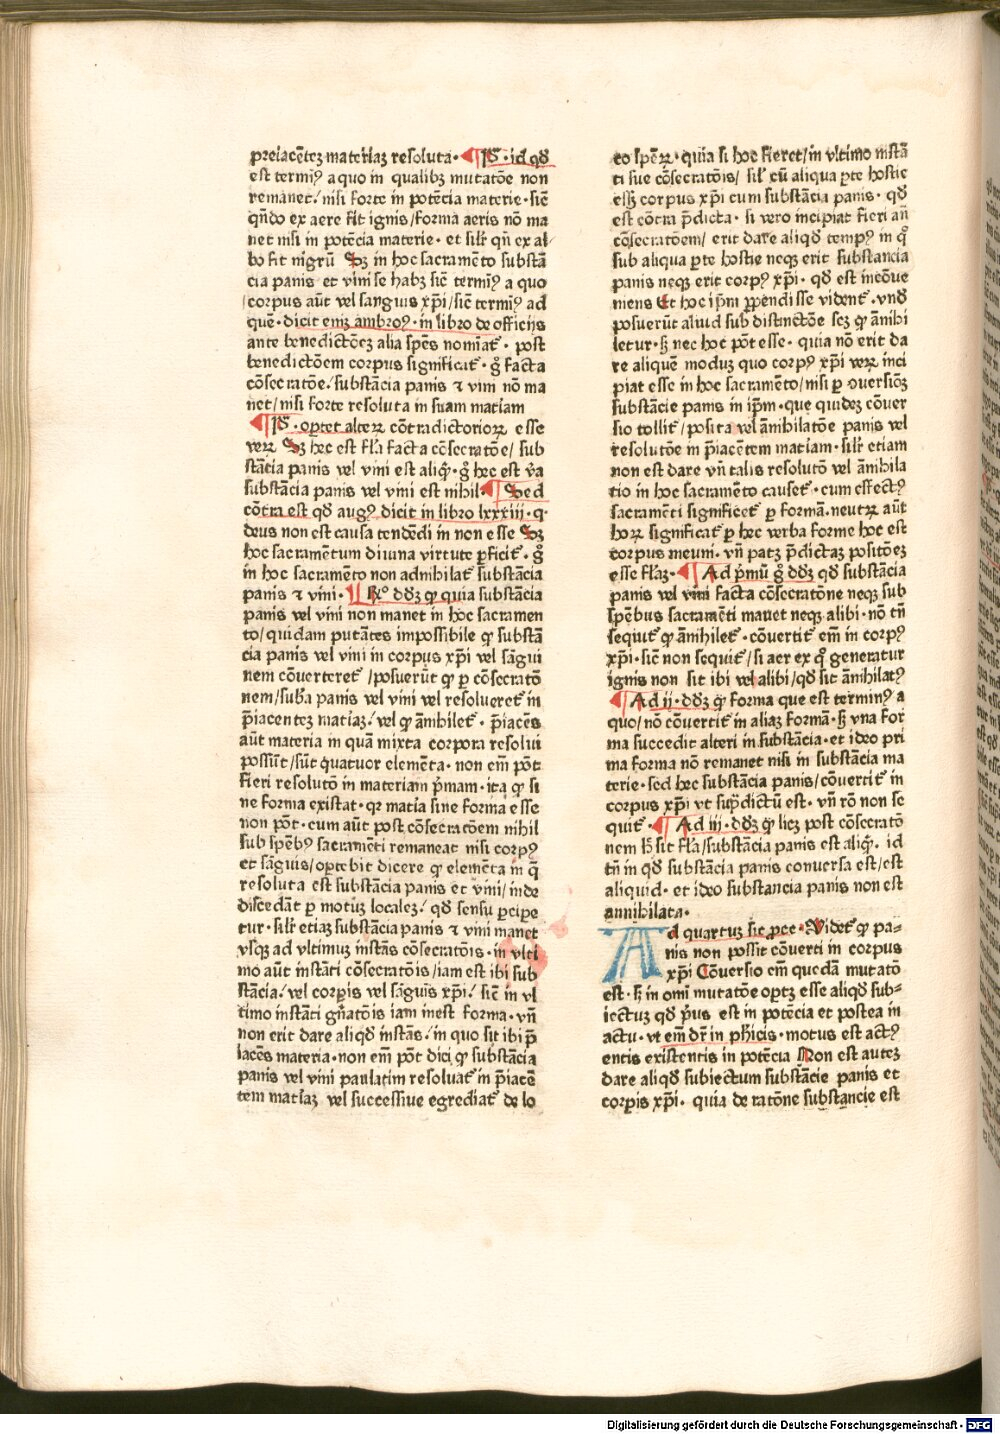 preiacētez materiaz resoluta· ¶ P̄· id qđ
est termiꝰ a quo in qualibꝫ mutatōe non
remanet/ nisi forte in potēcia materie· sic̄
qn̄do ex aere fit ignis/ forma aeris nō ma
net nisi in potēcia materie· et silr̄ qn̄ ex al
bo fit nigrū Sꝫ in hoc sacramēto substā
cia panis et vini se habꝫ sic̄ termiꝰ a quo
/corpus aūt vel sanguis xp̄i/ sic̄ termiꝰ ad
quē· dicit enīz ambroꝰ· in libro de officijs
ante benedictōez alia spēs nominat̄· post
benedictōem corpus significat̄· g̊ facta
cōsecratōe/ substācia panis ⁊ vini nō ma
net/ nisi forte resoluta in suam matīam
¶ P̄· oꝑtet alteꝝ cōtradictorioꝝ esse
veꝝ Sꝫ hec est fl̄a facta cōsecratōe/ sub
stācia panis vel vini est aliqͥ· g̊ hec est v̄a
substācia panis vel vini est nihil ¶ Sed
cōtra est qđ augꝰ dicit in libro lxxxiij· q·
deus non est causa tendēdi in non esse Sꝫ
hoc sacramētum diuina virtute ꝑficit̄· g̊
in hoc sacramēto non adnihilat̄ substācia
panis ⁊ vini· ¶ Rº dđz ꝙ quia substācia
panis vel vini non manet in hoc sacramen
to/ quidam putātes impossibile ꝙ substā
cia panis vel vini in corpus xp̄i vel sāgui
nem cōuerteret̄/ posuerūt ꝙ ꝑ cōsecratō
nem/ sub̄a panis vel vini vel resolueret̄ in
p̄iacentez matīaz/ vel ꝙ ānihilet̄· p̄iacēs
aūt materia in quā mixta corpora resolui
possūt/ sūt q̇atuor elemēta· non em̄ pōt
fieri resolutō in materiam p̄mam· ita ꝙ si
ne forma existat· qꝛ matīa sine forma esse
non pōt· cum aūt post cōsecratōem nihil
sub spēbꝰ sacramēti remaneat nisi corpꝰ
et sāguis/ oꝑtebit dicere ꝙ elemēta in q̄
resoluta est substācia panis et vini/ inde
discedāt ꝑ motūz localez/ qđ sensu ꝑcipe
tur· silr̄ etiaꝫ substācia panis ⁊ vini manet
vsqꝫ ad vltimuꝫ instās cōsecratōis· in vlti
mo aūt instāti cōsecratōis/ iam est ibi sub
stācia/ vel corꝑis vel sāguis xp̄i/ sic̄ in vl
timo instāti gn̄atōis iam inest forma· vn̄
non erit dare aliqđ instās/ in quo sit ibi p̄
iacēs materia· non em̄ pōt dici ꝙ substācia
panis vel vini paulatim resoluat̄ in p̄iacē
tem matīaꝫ vel successiue egrediat̄ de lo
co speꝝ· quia si hoc fieret/ in vltimo instā
ti sue cōsecratōis/ silr̄ cū aliqua ꝑte hostie
essꝫ corpus xp̄i cum substācia panis· qđ
est cōtra p̄dicta· si vero incipiat fieri an̄
cōsecratōem/ erit dare aliqđ tempꝰ in q̊
sub aliqua ꝑte hostie neqꝫ erit substancia
panis neqꝫ erit corpꝰ xp̄i· qđ est incōue
niens Et hoc ip̄m ꝑpendisse vident̄· vnđ
posuerūt aliud sub distinctōe scꝫ ꝙ ānihi
letur· sꝫ nec hoc pōt esse· quia nō erit da
re aliquē moduꝫ quo corpꝰ xp̄i veꝝ inci
piat esse in hoc sacramēto/ nisi ꝑ ꝯuersiōꝫ
substācie panis in ip̄m· que quideꝫ cōuer
sio tollit̄/ posita vel ānihilatōe panis vel
resolutōe in p̄iacētem matīam· silr̄ etiam
non est dare vn̄ talis resolutō vel ānihila
tio in hoc sacramēto causet̄· cum effectꝰ
sacramēti significet̄ ꝑ formā· neutꝝ aūt
hoꝝ significat̄ ꝑ hec verba forme hoc est
corpus meum· vn̄ patꝫ p̄dictaꝫ positōeꝫ
esse fl̄aꝫ· ¶ Ad p̄mū g̊ dđz qđ substācia
panis vel vini facta cōsecratōne neqꝫ sub
spēbus sacramēti manet neqꝫ alibi· nō tn̄
sequit̄ ꝙ ānihilet̄· cōuertit̄ em̄ in corpꝰ
xp̄i· sic̄ non sequit̄/ si aer ex q̊ generatur
ignis non sit ibi vel alibi/ qđ sit ānihilatꝰ
¶ Ad ij· dđz ꝙ forma que est terminꝰ a
quo/ nō cōuertit̄ in aliaꝫ formā· sꝫ vna for
ma succedit alteri in substācia· et ideo pri
ma forma nō remanet nisi in substācia ma
terie· sed hec substācia panis/ cōuertit̄ in
corpus xp̄i vt sup̄dictū est· vn̄ rō non se
quit̄· ¶ Ad iij· dđz ꝙ licꝫ post cōsecratō
nem h̄ sit fl̄a/ substācia panis est aliqͥ· id
tn̄ in qđ substācia panis conuersa est/ est
aliquid· et ideo substancia panis non est
annihilata·
Ad quartuꝫ sic ꝓce· Videt̄ ꝙ pa-
nis non possit cōuerti in corpus
xp̄i Cōuersio em̄ quedā mutatō
est· sꝫ in omī mutatōe oꝑtꝫ esse aliqđ sub-
iectuꝫ qđ p̄us est in potēcia et postea in
actu· vt em̄ dr̄ in ph̄icis· motus est actꝰ
entis existentis in potēcia Non est auteꝫ
dare aliqđ subiectum substācie panis et
corꝑis xp̄i· quia de ratōne substancie est